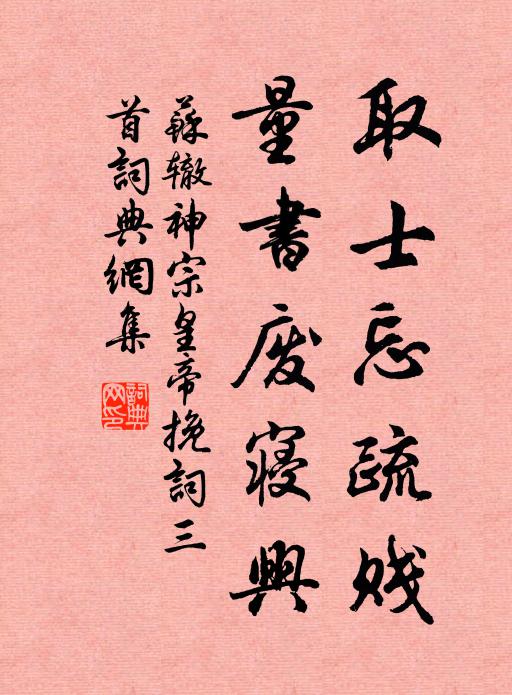 取士忘疏贱
量書废寝興
蘇辙神宗皇帝挽詞三
首詞典網集
詞典
网印